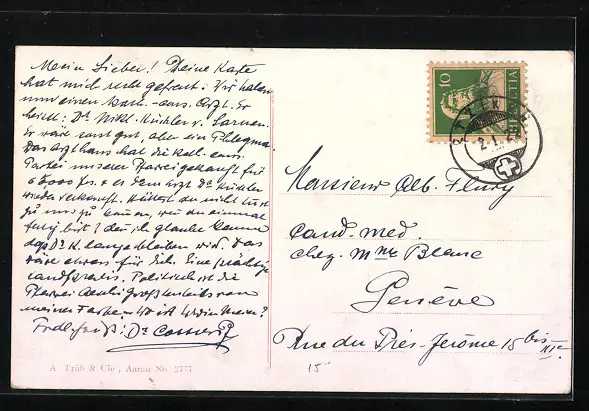 Mein Lieber! Deine Karte
hat mich recht gefreut. Wir haben
nun einen kath.-cons. Arzt. Er
heisst: Dr. Nikl. Küchler v. Sarnen.
Er wäre sonst gut, aber ein Phlegma.
Das Arzthaus hat die kath. cons.
Partei unserer Pfarrei gekauft für
& es dem Arzt Dr. Küchler
wieder verkauft. Hättest du nicht Lust
zu uns zu kommen, wenn du einmal
fertig bist? denn ich glaube kaum
dass Dr. K. lange bleiben wird. Das
wäre etwas für dich. Eine prächtige
Landpraxis. Politisch ist die
Pfarrei
meiner Farbe.
Frdl. Gruss: Dr.
A. Trüb & Cie., Aarau No. 2777.
10
HELVETIA
Monsieur Alb. Flury
cand. med.
chez Mme Blanc
Genève
Rue du Prés-Jérôme 15 bis
15